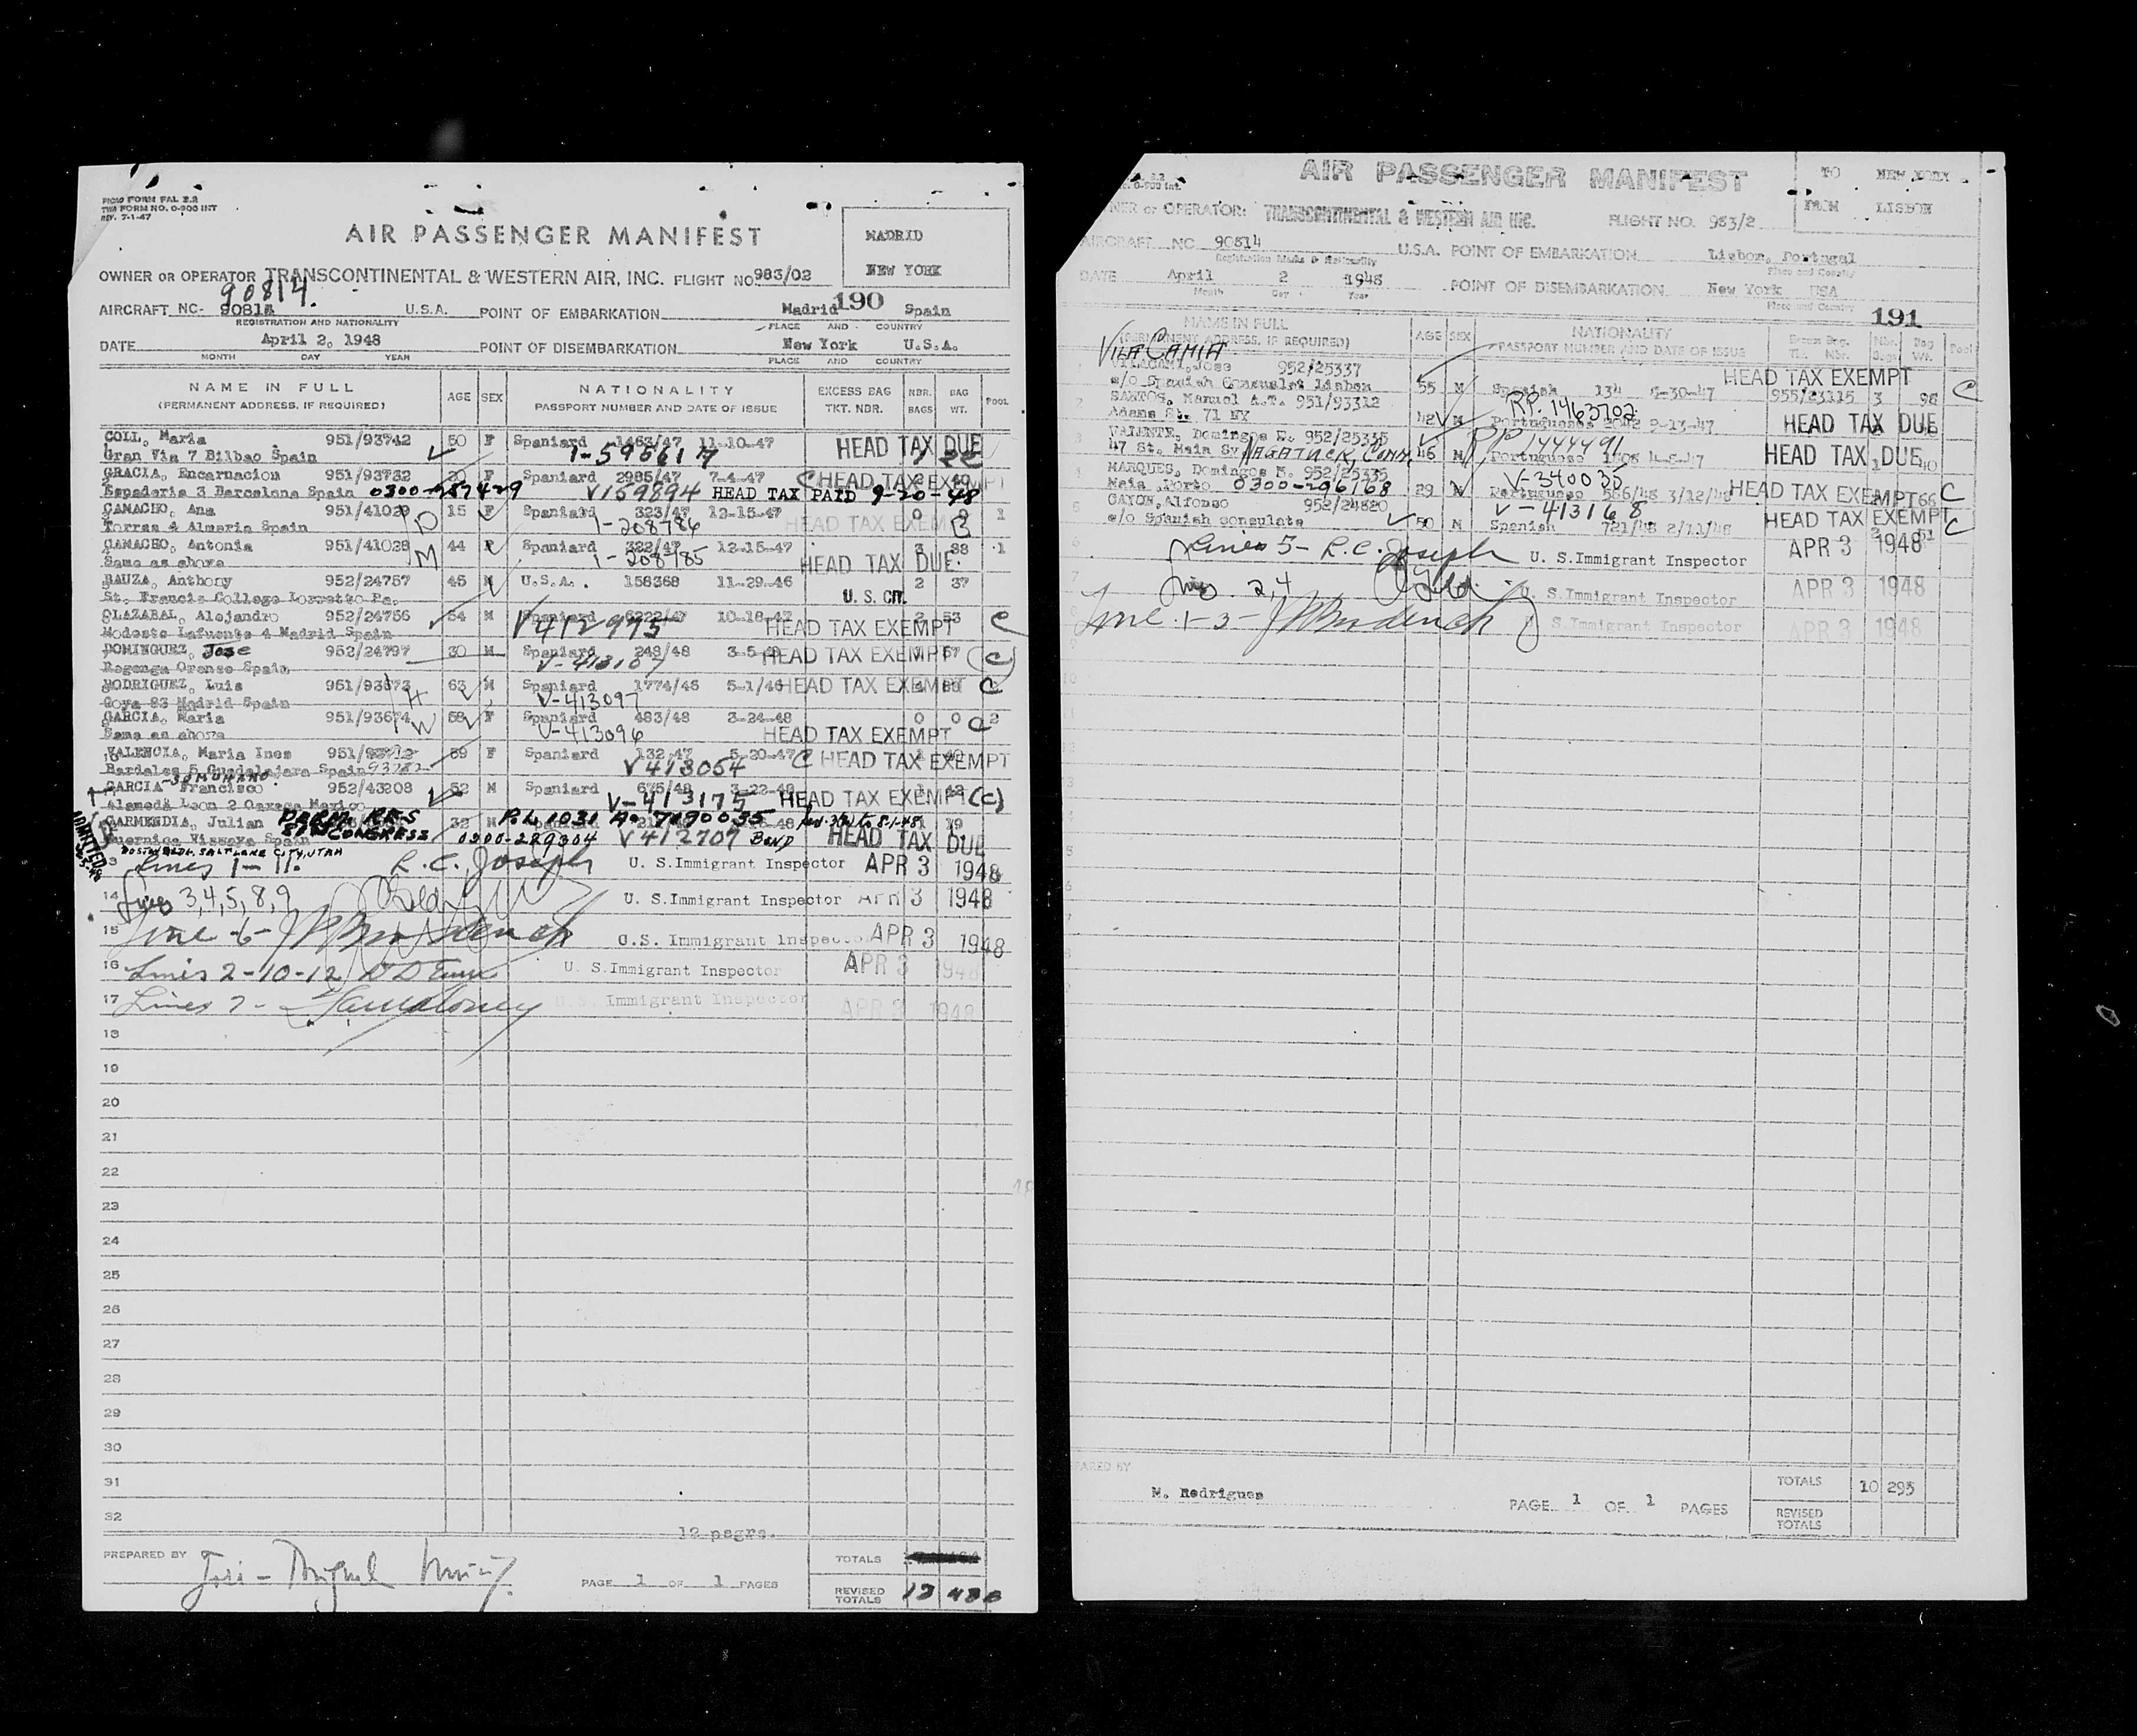 PICAO FORM FAL 2.2
TWA FORM NO. O-900 INT
REV. 7-1-47
AIR PASSENGER MANIFEST
MADRID
NEW YORK
OWNER OR OPERATOR TRANSCONTINENTAL & WESTERN AIR, INC. FLIGHT NO. 983/02
90814.
AIRCRAFT NC- 90814 U.S.A. POINT OF EMBARKATION Madrid 190 Spain
REGISTRATION AND NATIONALITY PLACE AND COUNTRY
DATE April 2, 1948 POINT OF DISEMBARKATION New York U.S.A.
MONTH DAY YEAR PLACE AND COUNTRY
NAME IN FULL AGE SEX NATIONALITY EXCESS BAG NBR. BAG POOL
(PERMANENT ADDRESS, IF REQUIRED) PASSPORT NUMBER AND DATE OF ISSUE TKT. NBR. BAGS WT.
COLL, Maria 951/93742 50 F Spaniard 1463/47 11-10-47 HEAD TAX DUE
Gran Via 7 Bilbao Spain I-595617
GRACIA, Encarnacion 951/93732 20 F Spaniard 2985/47 7-4-47 C HEAD TAX EXEMPT
Espaderia 3 Barcelona Spain 0300-287429 V159894 HEAD TAX PAID 9-20-48
CAMACHO, Ana 951/41029 D 15 F Spaniard 323/47 12-15-47 0 0 1
Torres 4 Almeria Spain I-208786 HEAD TAX EXEMPT
CAMACHO, Antonia 951/41028 M 44 F Spaniard 322/47 12-15-47 3 38 1
Same as above I-208785 HEAD TAX DUE
BAUZA, Anthony 952/24757 45 M U.S.A. 158368 11-29-46 2 37
St. Francis College Lorretto Pa. U. S. CIT.
OLAZABAL, Alejandro 952/24756 54 M Spaniard 6222/47 10-18-47 2 53 C
Modesto Lafuente 4 Madrid Spain V412975 HEAD TAX EXEMPT
DOMINGUEZ, Jose 952/24797 30 M Spaniard 248/48 3-5-48 HEAD TAX EXEMPT 57 (C)
Orense Spain V-413107
RODRIGUEZ, Luis 951/93673 H 63 M Spaniard 1774/46 5-1/46 HEAD TAX EXEMPT C
Goya 83 Madrid Spain V-413097
GARCIA, Maria 951/93674 W 58 F Spaniard 483/48 3-24-48 0 0 C 2
Same as above V-413096 HEAD TAX EXEMPT
VALENCIA, Maria Ines 951/93712 59 F Spaniard 132/47 5-20-47 C HEAD TAX EXEMPT
Bardales 5 Guadalajara Spain V413054
SOMOHANO
GARCIA Francisco 952/43208 52 M Spaniard 675/48 3-22-48
Alameda Leon 2 Oaxaca Mexico V-413175 HEAD TAX EXEMPT (C)
GARMENDIA, Julian PERM. RES 32 M P.L 1031 A- 7190035
Guernica Viscaya Spain CONGRESS 0300-289304 V412707 BOND HEAD TAX DUE
ADMITTED
BOSTON BLDG. SALT LAKE CITY, UTAH
Lines 1-11. R.C. Joseph U. S.Immigrant Inspector APR 3 1948
14 Lines 3,4,5,8,9 U. S.Immigrant Inspector APR 3 1948
15 Line -6- U.S. Immigrant Inspector APR 3 1948
16 Lines 2-10-12 U. S.Immigrant Inspector APR 3 1948
17 Lines 7- U. S. Immigrant Inspector APR 3 1948
18
19
20
21
22
23
24
25
26
27
28
29
30
31
32
12 psgrs.
PREPARED BY PAGE 1 OF 1 PAGES TOTALS
REVISED TOTALS 13 480
AIR PASSENGER MANIFEST
TO NEW YORK
FROM LISBON
OWNER or OPERATOR: TRANSCONTINENTAL & WESTERN AIR INC. FLIGHT NO. 983/2
AIRCRAFT NC 90814 U.S.A. POINT OF EMBARKATION Lisbon, Portugal
Registration Marks & Nationality Place and Country
DATE April 2 1948 POINT OF DISEMBARKATION New York USA
Month Day Year Place and Country
191
NAME IN FULL AGE SEX NATIONALITY Excess Bag. Nbr. Bag Pool
(PERMANENT ADDRESS, IF REQUIRED) PASSPORT NUMBER AND DATE OF ISSUE Tkt. Nbr. Bags Wt.
VILACAMIA, Jose 952/25337 HEAD TAX EXEMPT
c/o Spanish Consulat Lisbon 55 M Spanish 134 5-30-47 955/23115 3 98 C
SANTOS, Manuel A.T. 951/93312 RP. 1463702
Adams St. 71 NY 42 M Portuguese 2042 9-13-47 HEAD TAX DUE
VALENTE, Domingos R. 952/25335 RP 1444491
47 St. Main St. NAGATUCK, CONN. 46 M Portuguese HEAD TAX DUE 40
MARQUES, Domingos M. 952/25335 V-340035
Maia, Porto 0300-296168 29 M Portuguese 566/48 3/12/48 HEAD TAX EXEMPT 66 C
GAYON, Alfonso 952/24820 V-413168
c/o Spanish consulate 50 M Spanish 721/48 2/11/48 HEAD TAX EXEMPT 51 C
Lines 5- R.C. Joseph U. S.Immigrant Inspector APR 3 1948
Lines 2,4 U. S.Immigrant Inspector APR 3 1948
Line 1-3- U. S.Immigrant Inspector APR 3 1948
PREPARED BY
M. Rodrigues PAGE 1 OF 1 PAGES TOTALS 10 295
REVISED TOTALS